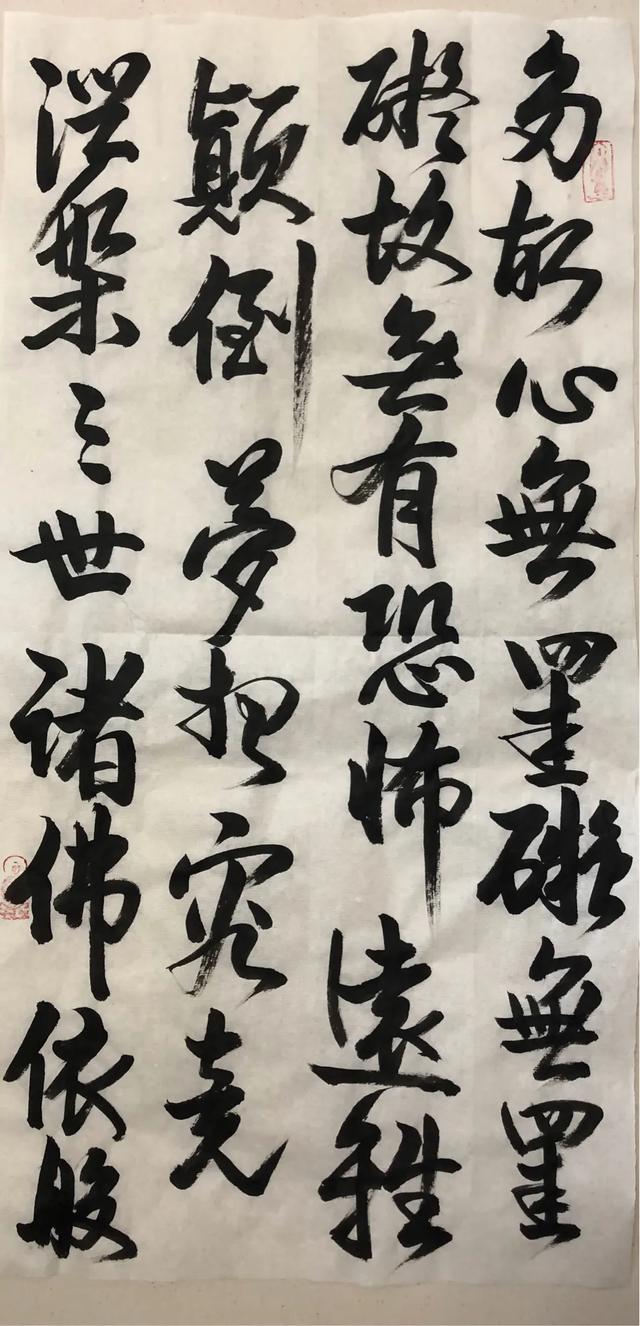 多故心無罣礙無罣
礙故無有恐怖遠離
顛倒夢想究竟
涅槃三世諸佛依般